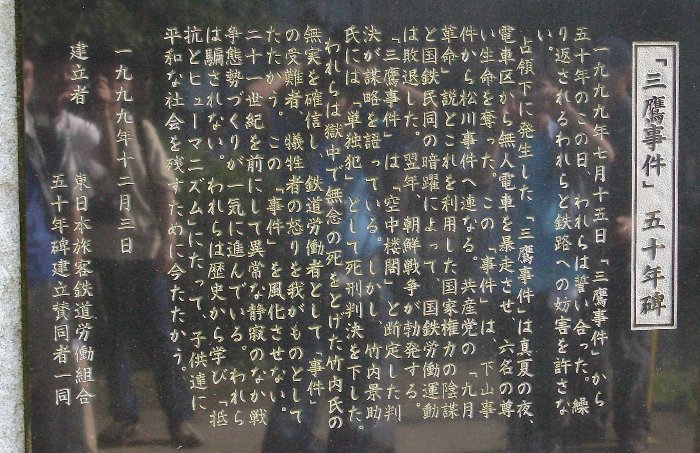 「三鷹事件」五十年碑
一九九九年七月十五日「三鷹事件」から
五十年のこの日、われらは誓い合った。繰
り返されるわれらと鉄路への妨害を許さな
い。
占領下に発生した「三鷹事件」は真夏の夜、
電車区から無人電車を暴走させ、六名の尊
い生命を奪った。この「事件」は、下山事
件から松川事件へ連なる。共産党の「九月
革命」説とこれを利用した国家権力の陰謀
と国鉄民同の暗躍によって、国鉄労働運動
は敗退した。翌年、朝鮮戦争が勃発する。
「三鷹事件」は「空中楼閣」と断定した判
決が謀略を語っている。しかし、竹内景助
氏には「単独犯」として死刑判決を下した。
われらは獄中で無念の死をとげた竹内氏の
無実を確信し、鉄道労働者として「事件」
の受難者、犠牲者の怒りを我がものとして
たたかう。この「事件」を風化させない。
二十一世紀を前にして異常な静寂のなか戦
争態勢づくりが一気に進んでいる。われら
は騙されない。われらは歴史から学び「抵
抗とヒューマニズム」にたって、子供達に
平和な社会を残すために今たたかう。
一九九九年十二月三日
建立者 東日本旅客鉄道労働組合
五十年碑建立賛同者一同